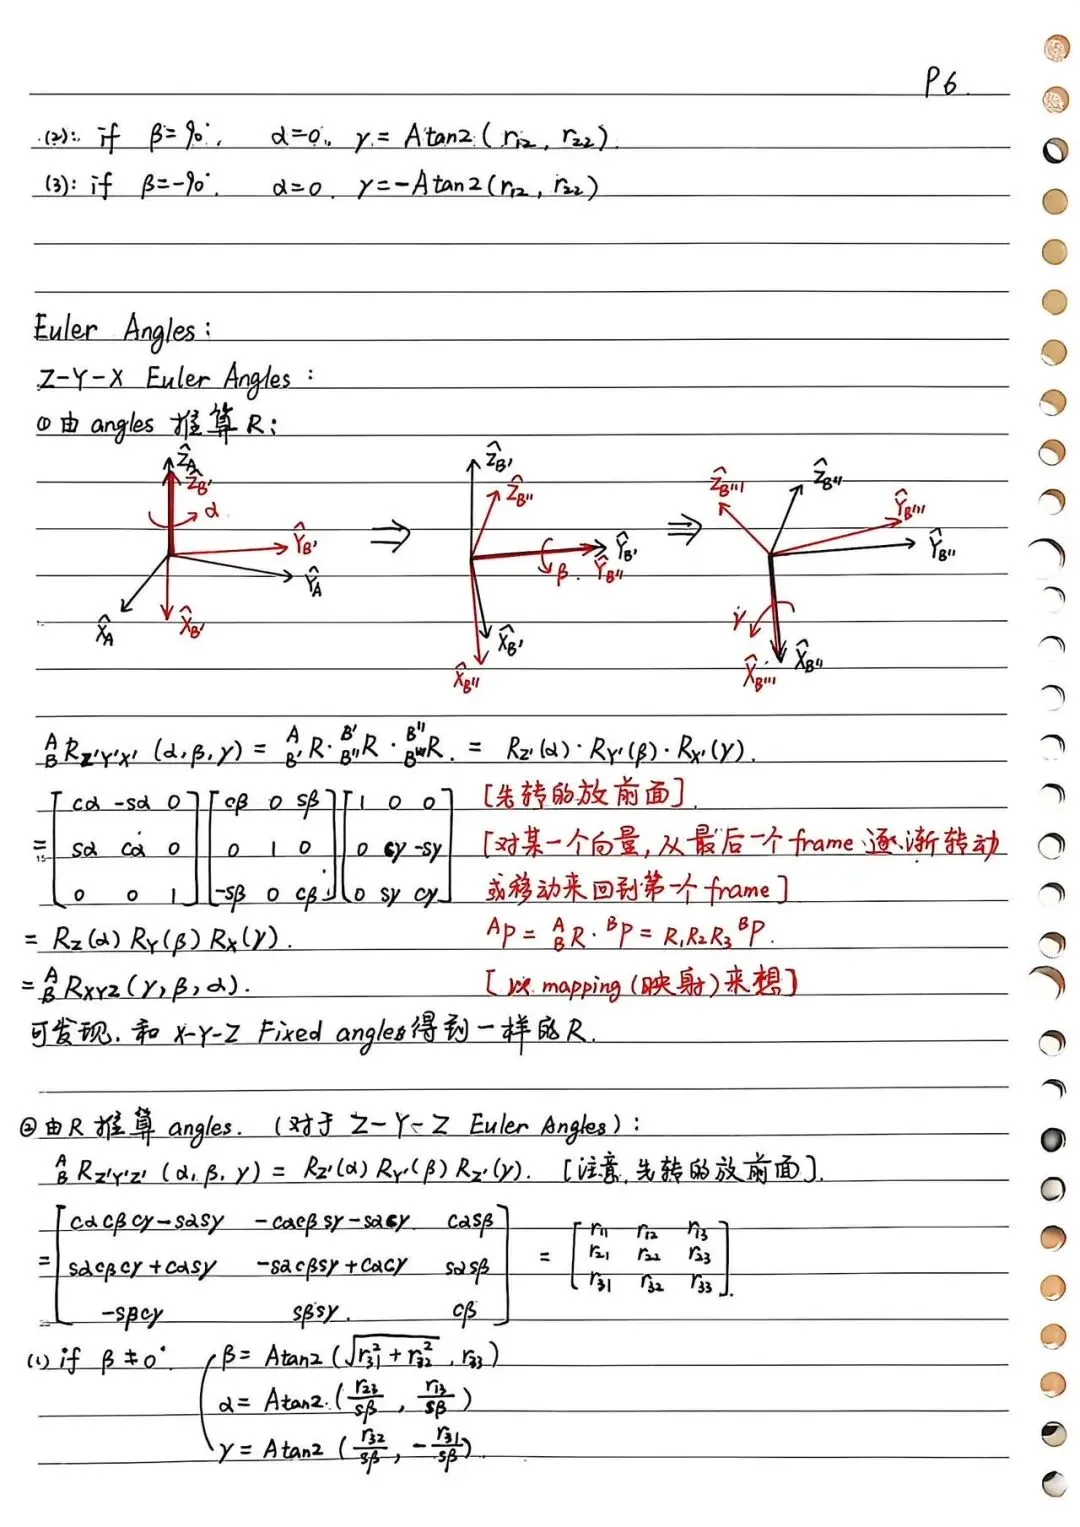 P6.
(2): if β=90°, α=0, γ=Atan2(r₁₂, r₂₂)
(3): if β=-90°. α=0. γ=-Atan2(r₁₂, r₂₂)
Euler Angles:
Z-Y-X Euler Angles:
①由 angles 推算 R:
Ẑ_A Ẑ_B' α Ŷ_B' Ŷ_A X̂_A X̂_B' ⇒ Ẑ_B' Ẑ_B'' Ŷ_B' Ŷ_B'' β X̂_B' X̂_B'' ⇒ Ẑ_B''' Ẑ_B'' Ŷ_B''' Ŷ_B'' γ X̂_B''' X̂_B''
^A_B R_Z'Y'X' (α,β,γ) = ^A_B' R · ^B'_B'' R · ^B''_B''' R. = R_Z'(α)·R_Y'(β)·R_X'(γ).
= [cα -sα 0; sα cα 0; 0 0 1] [cβ 0 sβ; 0 1 0; -sβ 0 cβ] [1 0 0; 0 cγ -sγ; 0 sγ cγ]
[先转的放前面].
[对某一个向量,从最后一个frame逐渐转动
或移动来回到第一个frame]
= R_Z(α) R_Y(β) R_X(γ).
^AP = ^A_B R · ^BP = R₁R₂R₃ ^BP.
= ^A_B R_XYZ (γ,β,α).
[以 mapping (映射)来想]
可发现,和 X-Y-Z Fixed angles得到一样的R.
②由R推算 angles. (对于 Z-Y-Z Euler Angles):
^A_B R_Z'Y'Z' (α,β,γ) = R_Z'(α) R_Y'(β) R_Z'(γ). [注意,先转的放前面].
= [cαcβcγ-sαsγ -cαcβsγ-sαcγ cαsβ; sαcβcγ+cαsγ -sαcβsγ+cαcγ sαsβ; -sβcγ sβsγ cβ] = [r₁₁ r₁₂ r₁₃; r₂₁ r₂₂ r₂₃; r₃₁ r₃₂ r₃₃].
(1) if β≠0°. β=Atan2(√(r₃₁²+r₃₂²), r₃₃)
α=Atan2(r₂₃/sβ, r₁₃/sβ)
γ=Atan2(r₃₂/sβ, -r₃₁/sβ).